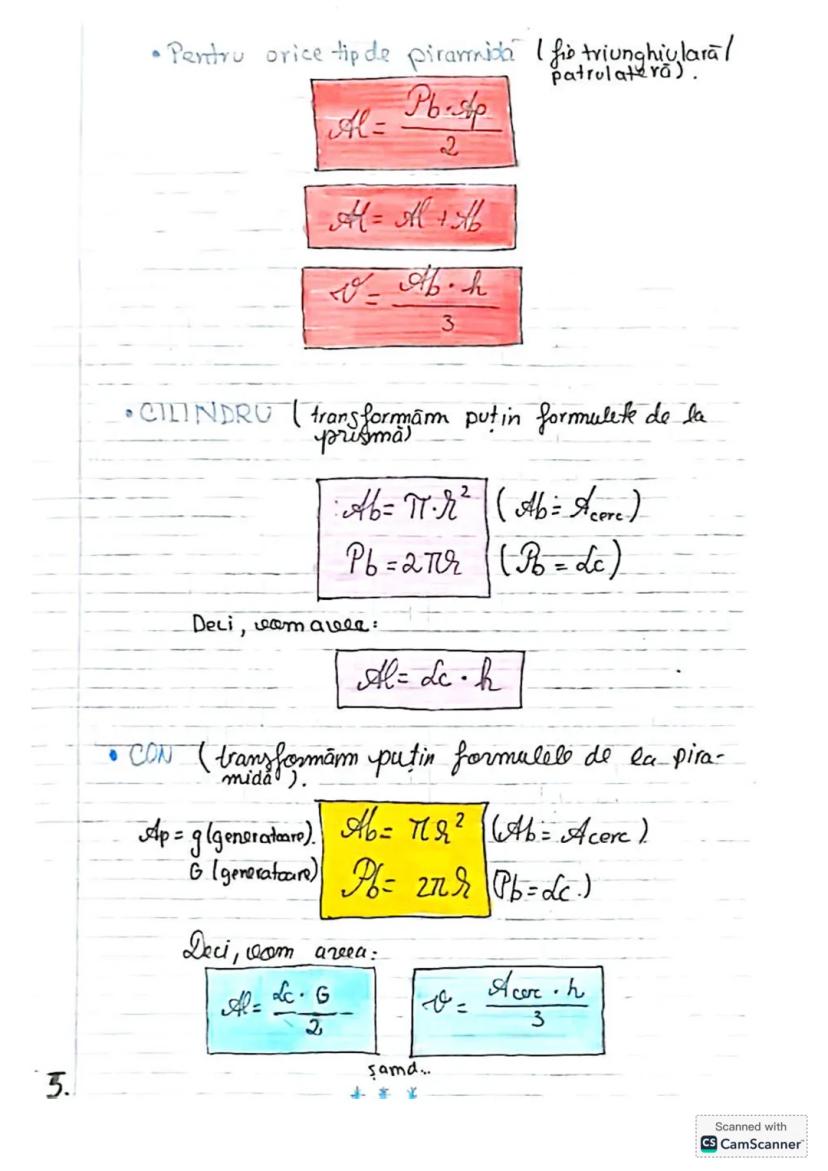 • Pentru orice tip de piramidă (fie triunghiulară/
patrulateră).
Al = Pb · Ap / 2
At = Al + Ab
V = Ab · h / 3
• CILINDRU (transformăm puțin formulele de la
prismă)
Ab = π · R² (Ab = Acerc)
Pb = 2πR (Pb = Lc)
Deci, vom avea:
Al = Lc · h
• CON (transformăm puțin formulele de la pira-
midă).
Ap = g (generatoare). Ab = πR² (Ab = Acerc).
G (generatoare) Pb = 2πR (Pb = Lc.)
Deci, vom avea:
Al = Lc · G / 2 V = Acerc · h / 3
șamd...
5. * * *
Scanned with
CS CamScanner